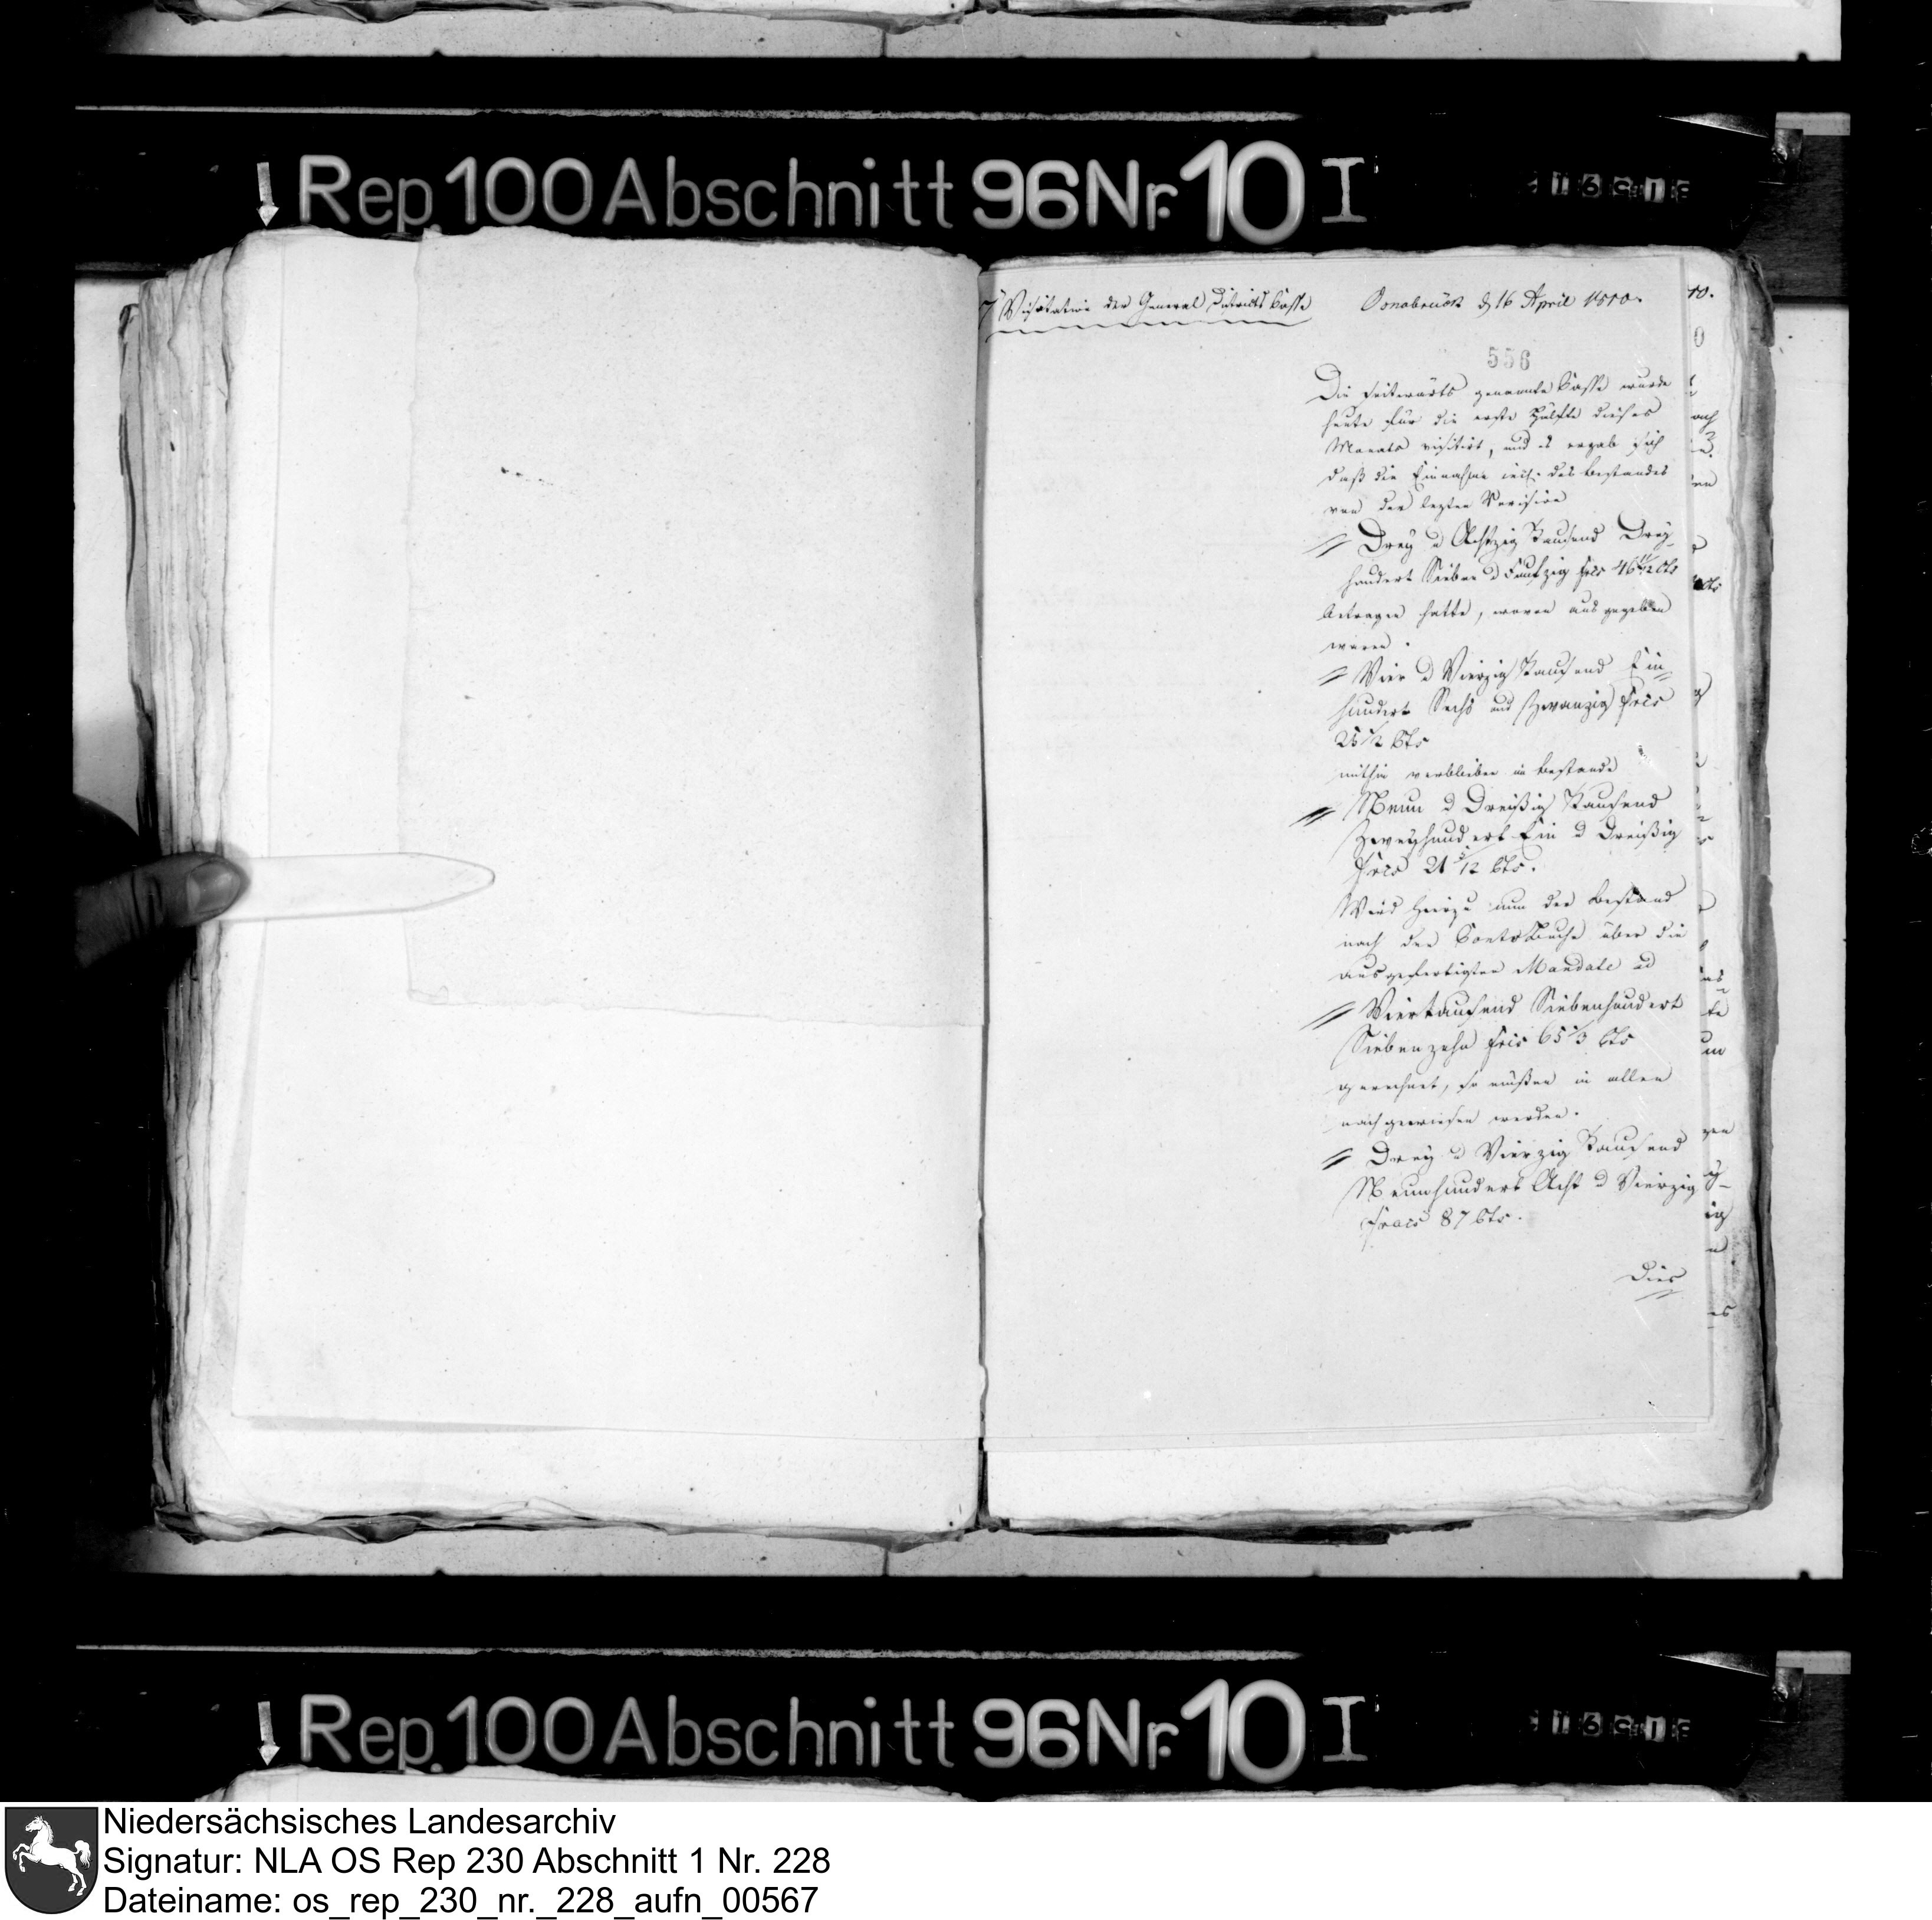 Rep. 100 Abschnitt 96 Nr. 10 I
7 Visitation der General Districts Casse
Osnabrück d 16 April 1810.
10.
556
Die seitwärts genannte Casse wurde
heute für die erste Hälfte dieses
Monats visitirt, und es ergab sich
daß die Einnahme incl. des Bestandes
von der lezten Revision
// Drey u Achtzig Tausend Drey-
hundert Sieben u Funfzig frcs 46 11/12 Cts
betragen hatte, wovon ausgegeben
waren.
// Vier u Vierzig Tausend Ein-
hundert Sechs und Zwanzig frcs
25 1/2 Cts
mithin verblieben in Bestande
// Neun u Dreißig Tausend
Zweyhundert Ein u Dreißig
frcs 21 5/12 Cts.
Wird hierzu nun der Bestand
nach dem Contobuche über die
ausgefertigten Mandate ad
// Viertausend Siebenhundert
Siebenzehn frcs 65 1/3 Cts
gerechnet, so müßen in allen
nachgewiesen werden.
// Drey u Vierzig Tausend
Neunhundert Acht u Vierzig
francs 87 Cts.
Dies
Rep. 100 Abschnitt 96 Nr. 10 I
Niedersächsisches Landesarchiv
Signatur: NLA OS Rep 230 Abschnitt 1 Nr. 228
Dateiname: os_rep_230_nr._228_aufn_00567